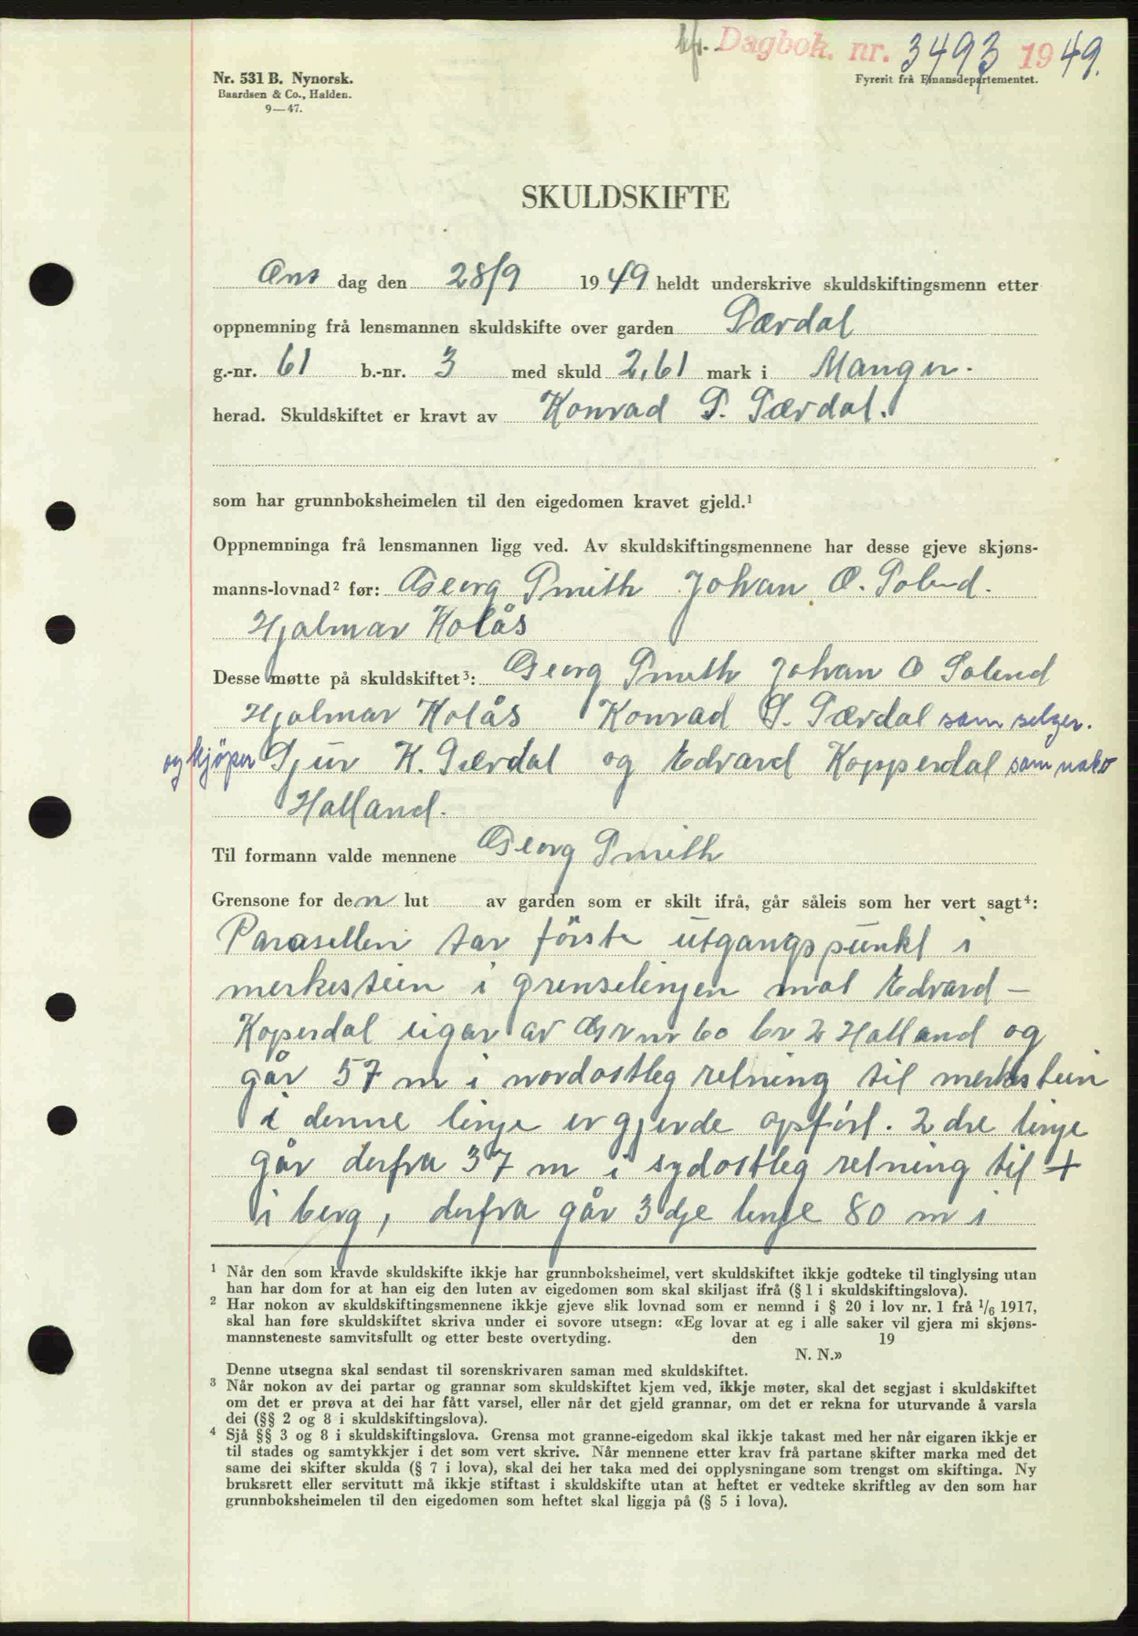 kfr. Dagbok. nr. 3493 1949.
Nr. 531 B. Nynorsk.
Baardsen & Co., Halden.
9—47.
Fyrerit frå Finansdepartementet.
SKULDSKIFTE
Ons dag den 28/9 1949 heldt underskrive skuldskiftingsmenn etter
oppnemning frå lensmannen skuldskifte over garden Særdal
g.-nr. 61 b.-nr. 3 med skuld 2,61 mark i Manger.
herad. Skuldskiftet er kravt av Konrad S. Særdal.
som har grunnboksheimelen til den eigedomen kravet gjeld.¹
Oppnemninga frå lensmannen ligg ved. Av skuldskiftingsmennene har desse gjeve skjøns-
manns-lovnad² før: Georg Smith Johan O. Solend.
Hjalmar Kolås
Desse møtte på skuldskiftet³: Georg Smith Johan O Solend
Hjalmar Kolås Konrad S. Særdal som selger.
og kjöper Sjur H. Særdal og Edvard Kopperdal som nabo
Halland.
Til formann valde mennene Georg Smith
Grensone for den lut av garden som er skilt ifrå, går såleis som her vert sagt⁴:
Parsellen tar förste utgangspunkt i
merkestein i grenselinjen mot Edvard –
Koperdal eigar av Gr nr 60 br 2 Halland og
går 57 m i nordostleg retning til merkestein
i denne linje er gjerde opfört. 2 dre linje
går derfra 37 m i sydostleg retning til +
i berg, derfra går 3 dje linje 80 m i
¹ Når den som kravde skuldskifte ikkje har grunnboksheimel, vert skuldskiftet ikkje godteke til tinglysing utan
han har dom for at han eig den luten av eigedomen som skal skiljast ifrå (§ 1 i skuldskiftingslova).
² Har nokon av skuldskiftingsmennene ikkje gjeve slik lovnad som er nemnd i § 20 i lov nr. 1 frå ¹/₆ 1917,
skal han føre skuldskiftet skriva under ei sovore utsegn: «Eg lovar at eg i alle saker vil gjera mi skjøns-
mannsteneste samvitsfullt og etter beste overtyding. den 19
N. N.»
Denne utsegna skal sendast til sorenskrivaren saman med skuldskiftet.
³ Når nokon av dei partar og grannar som skuldskiftet kjem ved, ikkje møter, skal det segjast i skuldskiftet
om det er prøva at dei har fått varsel, eller når det gjeld grannar, om det er rekna for uturvande å varsla
dei (§§ 2 og 8 i skuldskiftingslova).
⁴ Sjå §§ 3 og 8 i skuldskiftingslova. Grensa mot granne-eigedom skal ikkje takast med her når eigaren ikkje er
til stades og samtykkjer i det som vert skrive. Når mennene etter krav frå partane skifter marka med det
same dei skifter skulda (§ 7 i lova), skal dei her taka med dei opplysningane som trengst om skiftinga. Ny
bruksrett eller servitutt må ikkje stiftast i skuldskifte utan at heftet er vedteke skriftleg av den som har
grunnboksheimelen til den eigedomen som heftet skal liggja på (§ 5 i lova).